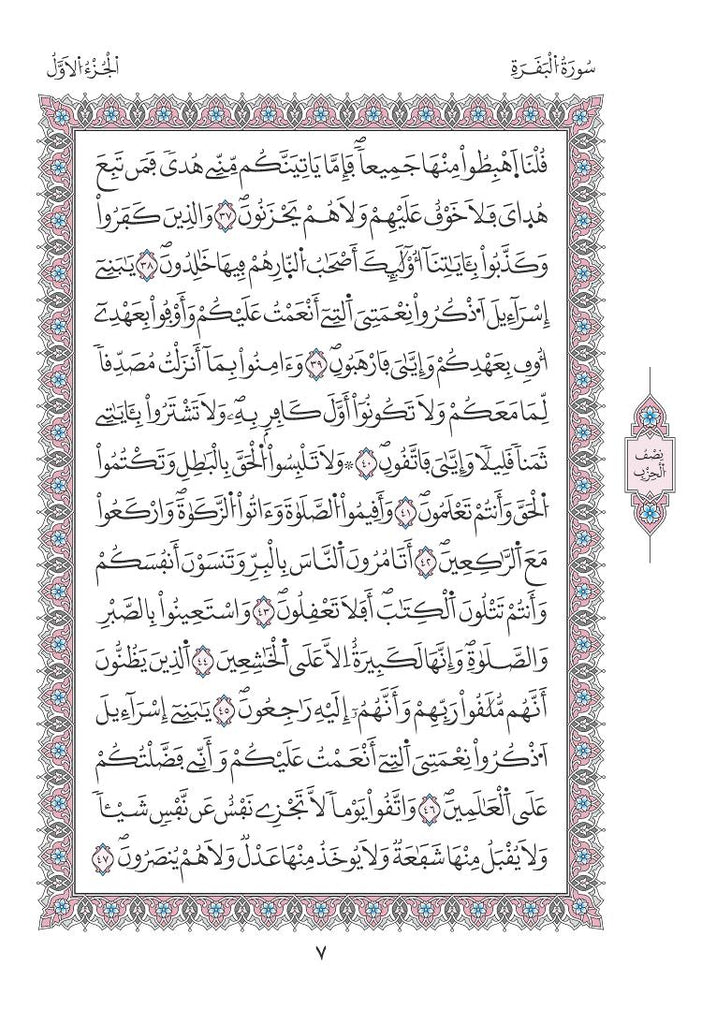 سُورَةُ اُ۬لْبَقَرَةِ
اُ۬لْجُزْءُ اُ۬لَاوَّلُ
قُلْنَا اَ۪هْبِطُواْ مِنْهَا جَمِيعاٗۖ فَإِمَّا يَاتِيَنَّكُم مِّنِّے هُديٗ فَمَن تَبِعَ
هُد۪ايَ فَلَا خَوْفٌ عَلَيْهِمْ وَلَا هُمْ يَحْزَنُونَۖ ٣٧ وَالذِينَ كَفَرُواْ
وَكَذَّبُواْ بِـَٔايَٰتِنَآ أُوْلَٰٓئِكَ أَصْحَٰبُ اُ۬لنّ۪ارِ هُمْ فِيهَا خَٰلِدُونَۖ ٣٨ يَٰبَنِےٓ
إِسْرَآءِيلَ اَ۟ذْكُرُواْ نِعْمَتِيَ اَ۬لتِےٓ أَنْعَمْتُ عَلَيْكُمْ وَأَوْفُواْ بِعَهْدِےٓ
أُوفِ بِعَهْدِكُمْ وَإِيَّٰيَ فَارْهَبُونِۖ ٣٩ وَءَامِنُواْ بِمَآ أَنزَلْتُ مُصَدِّقاٗ
لِّمَا مَعَكُمْ وَلَا تَكُونُوٓاْ أَوَّلَ كَافِرِۢ بِهِۦۖ وَلَا تَشْتَرُواْ بِـَٔايَٰتِے
ثَمَناٗ قَلِيلاٗ وَإِيَّٰيَ فَاتَّقُونِۖ ٤٠ ۞ وَلَا تَلْبِسُواْ اُ۬لْحَقَّ بِالْبَٰطِلِ وَتَكْتُمُواْ
اُ۬لْحَقَّ وَأَنتُمْ تَعْلَمُونَۖ ٤١ وَأَقِيمُواْ اُ۬لصَّلَوٰةَ وَءَاتُواْ اُ۬لزَّكَوٰةَۖ وَارْكَعُواْ
مَعَ اَ۬لرَّٰكِعِينَۖ ٤٢ أَتَامُرُونَ اَ۬لنَّاسَ بِالْبِرِّ وَتَنسَوْنَ أَنفُسَكُمْ
وَأَنتُمْ تَتْلُونَ اَ۬لْكِتَٰبَۖ أَفَلَا تَعْقِلُونَۖ ٤٣ وَاسْتَعِينُواْ بِالصَّبْرِ
وَالصَّلَوٰةِۖ وَإِنَّهَا لَكَبِيرَةٌ اِلَّا عَلَي اَ۬لْخَٰشِعِينَ ٤٤ اَ۬لذِينَ يَظُنُّونَ
أَنَّهُم مُّلَٰقُواْ رَبِّهِمْ وَأَنَّهُمُۥٓ إِلَيْهِ رَٰجِعُونَۖ ٤٥ يَٰبَنِےٓ إِسْرَآءِيلَ
اَ۟ذْكُرُواْ نِعْمَتِيَ اَ۬لتِےٓ أَنْعَمْتُ عَلَيْكُمْ وَأَنِّے فَضَّلْتُكُمْ
عَلَي اَ۬لْعَٰلَمِينَۖ ٤٦ وَاتَّقُواْ يَوْماٗ لَّا تَجْزِے نَفْسٌ عَن نَّفْسٖ شَيْـٔاٗ
وَلَا يُقْبَلُ مِنْهَا شَفَٰعَةٞ وَلَا يُوخَذُ مِنْهَا عَدْلٞ وَلَا هُمْ يُنصَرُونَۖ ٤٧
نِصْفُ
اُ۬لْحِزْبِ
٧